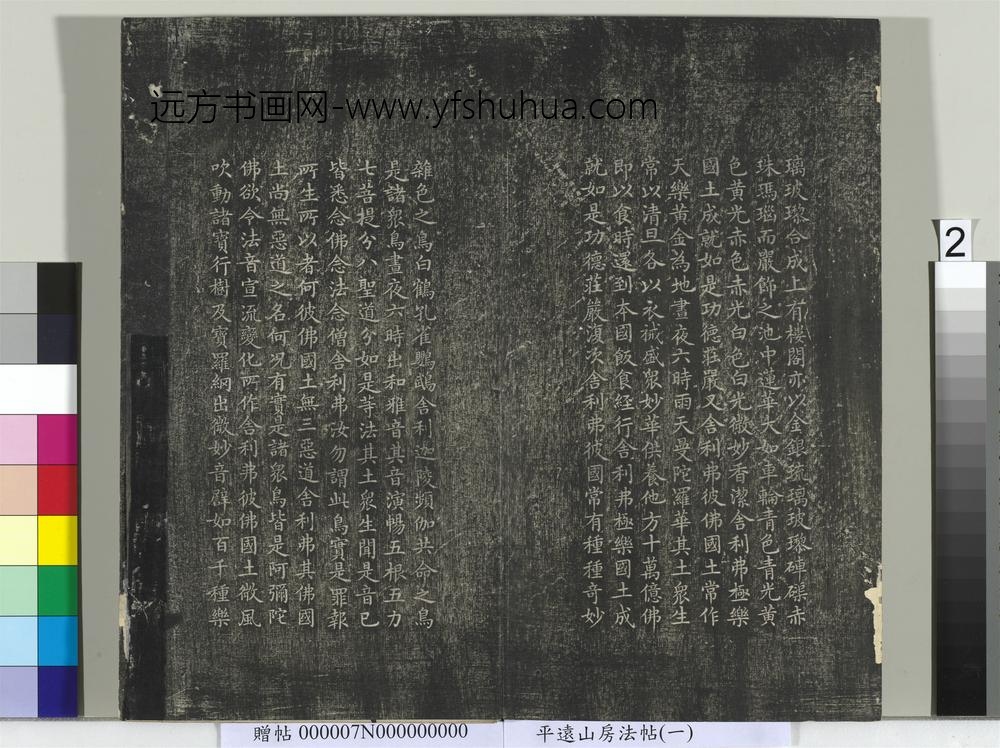 远方书画网-www.yfshuhua.com
璃玻瓈合成上有樓閣亦以金銀琉璃玻瓈硨磲赤
珠瑪瑙而嚴飾之池中蓮華大如車輪青色青光黄
色黄光赤色赤光白色白光微妙香潔舍利弗極樂
國土成就如是功德莊嚴又舍利弗彼佛國土常作
天樂黄金為地晝夜六時雨天曼陀羅華其土眾生
常以清旦各以衣祴盛眾妙華供養他方十萬億佛
即以食時還到本國飯食經行舍利弗極樂國土成
就如是功德莊嚴復次舍利弗彼國常有種種奇妙
雜色之鳥白鶴孔雀鸚鵡舍利迦陵頻伽共命之鳥
是諸眾鳥晝夜六時出和雅音其音演暢五根五力
七菩提分八聖道分如是等法其土眾生聞是音已
皆悉念佛念法念僧舍利弗汝勿謂此鳥實是罪報
所生所以者何彼佛國土無三惡道舍利弗其佛國
土尚無惡道之名何況有實是諸眾鳥皆是阿彌陀
佛欲令法音宣流變化所作舍利弗彼佛國土微風
吹動諸寶行樹及寶羅網出微妙音譬如百千種樂
2
贈帖 000007N000000000
平遠山房法帖(一)